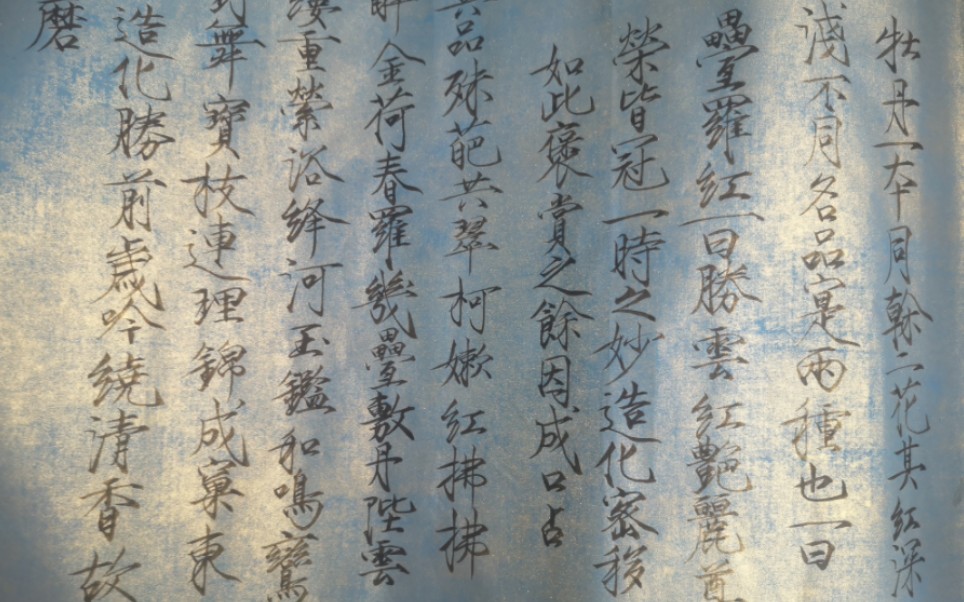 牡丹一本同幹二花其紅深
淺不同名品寔兩種也一曰
疊羅紅一曰勝雲紅艷麗尊
榮皆冠一時之妙造化密移
如此褒賞之餘因成口占
異品殊葩共翠柯嫩紅拂拂
醉金荷春羅幾疊敷丹陛雲
縷重縈浴絳河玉鑑和鳴鸞
對舞寶枝連理錦成窠東
造化勝前歲吟繞清香故
磨